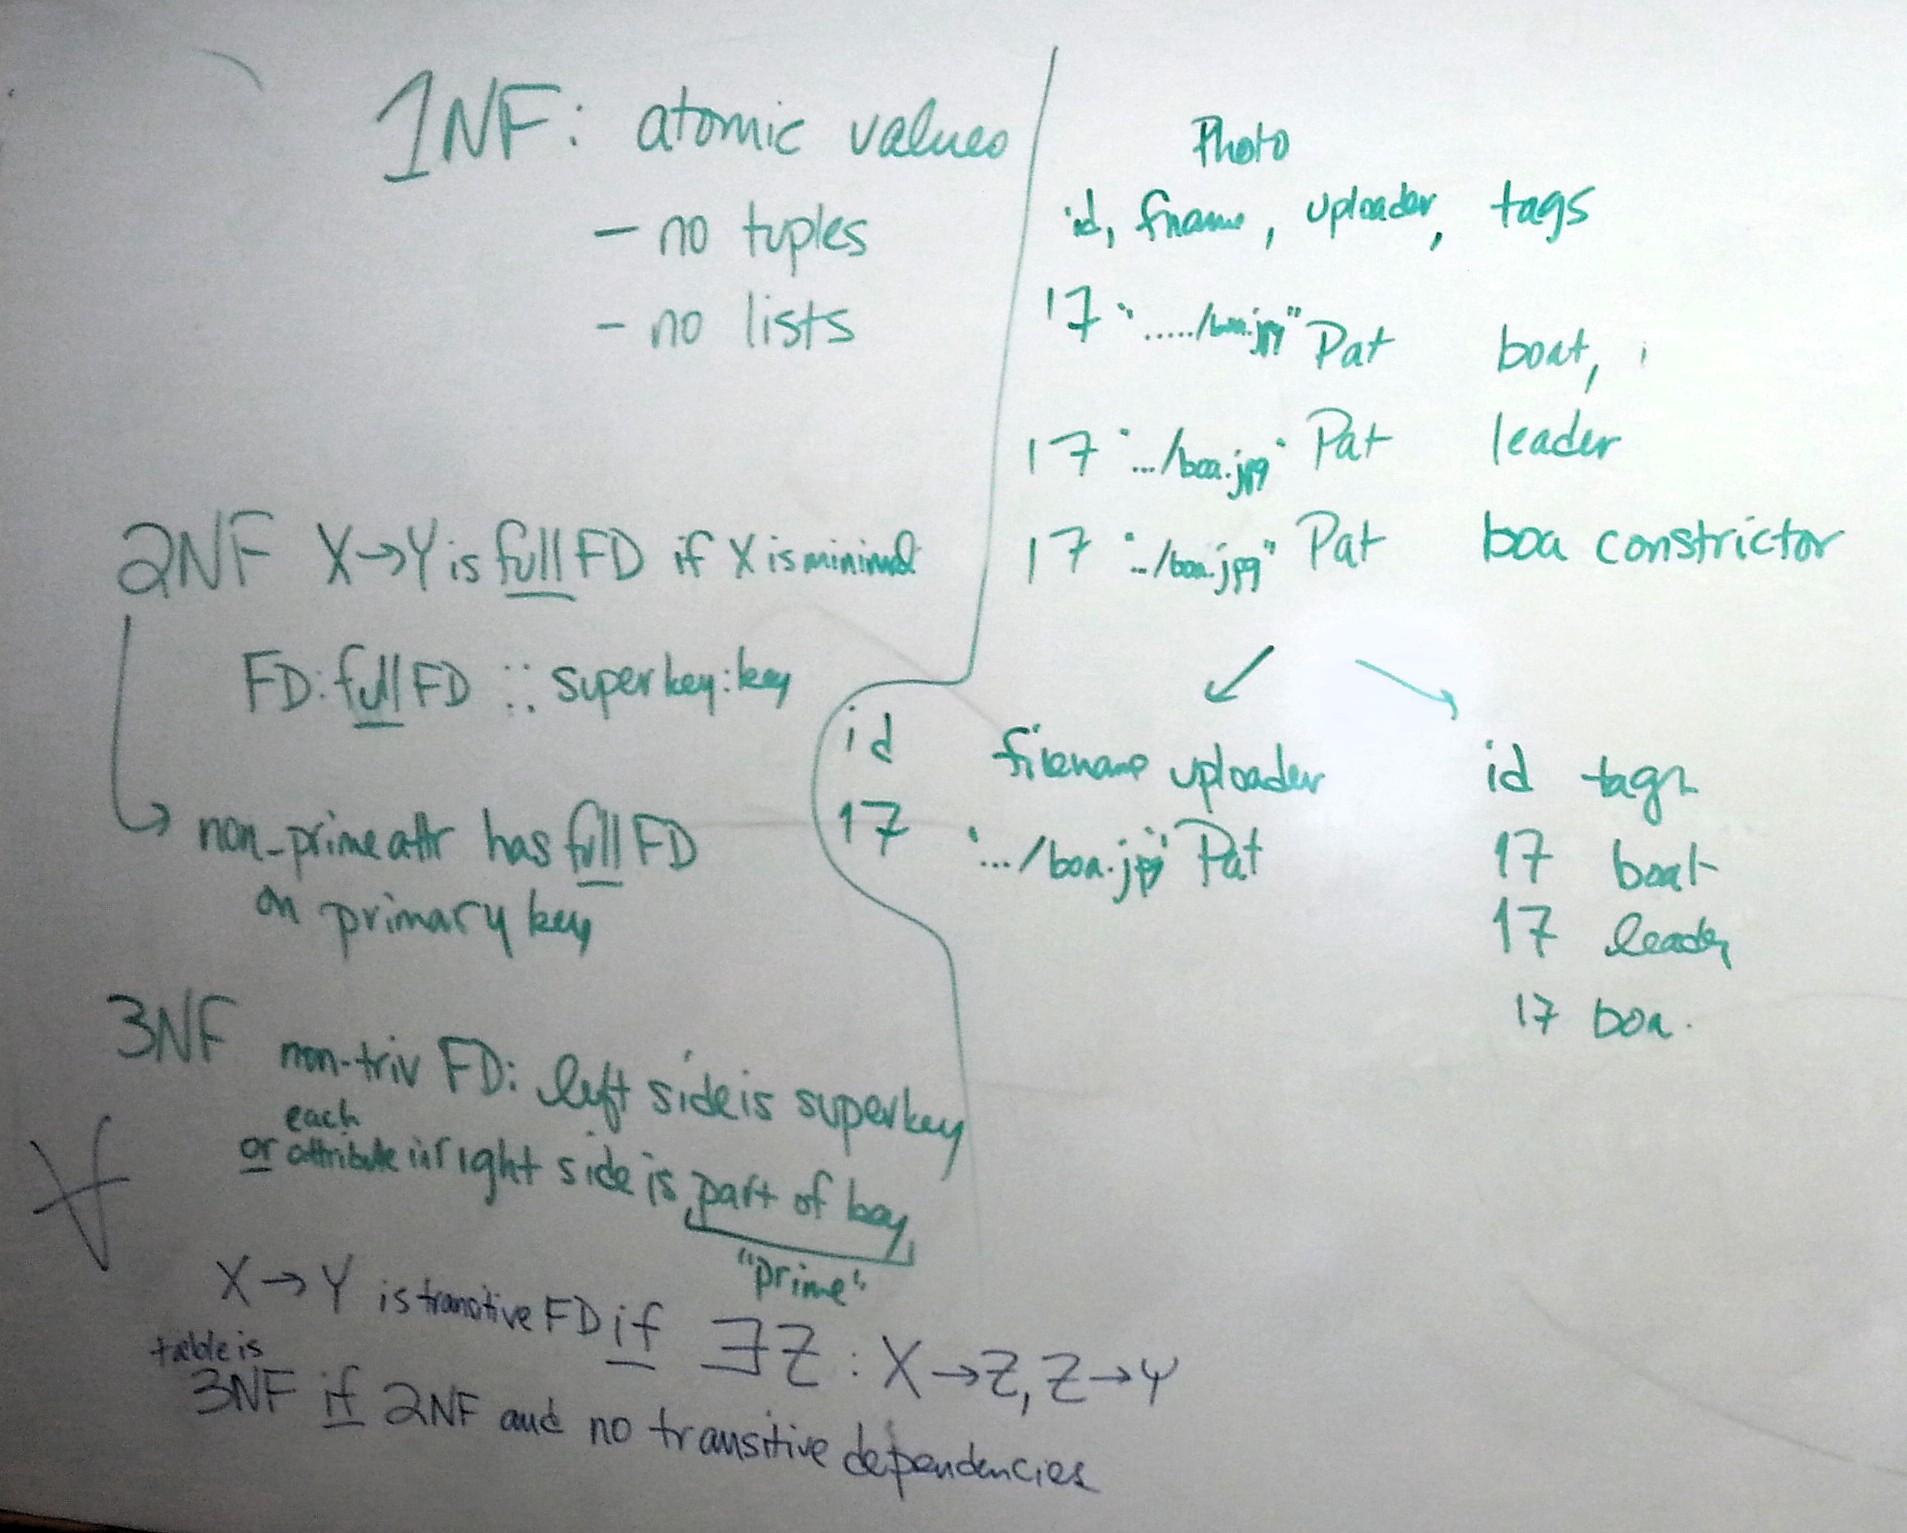 1NF: atomic values
- no tuples
- no lists
2NF X→Y is full FD if X is minimal
FD: full FD :: superkey: key
non-prime attr has full FD
on primary key
3NF non-triv FD: left side is superkey
each
or attribute in right side is part of key
"prime"
∀
X→Y is transitive FD if ∃Z: X→Z, Z→Y
table is
3NF if 2NF and no transitive dependencies
Photo
id, fname, uploader, tags
17 "...../boa.jpg" Pat boat,
17 ".../boa.jpg" Pat leader
17 "../boa.jpg" Pat boa constrictor
id filename uploader
17 ".../boa.jpg" Pat
id tags
17 boat
17 leader
17 boa.